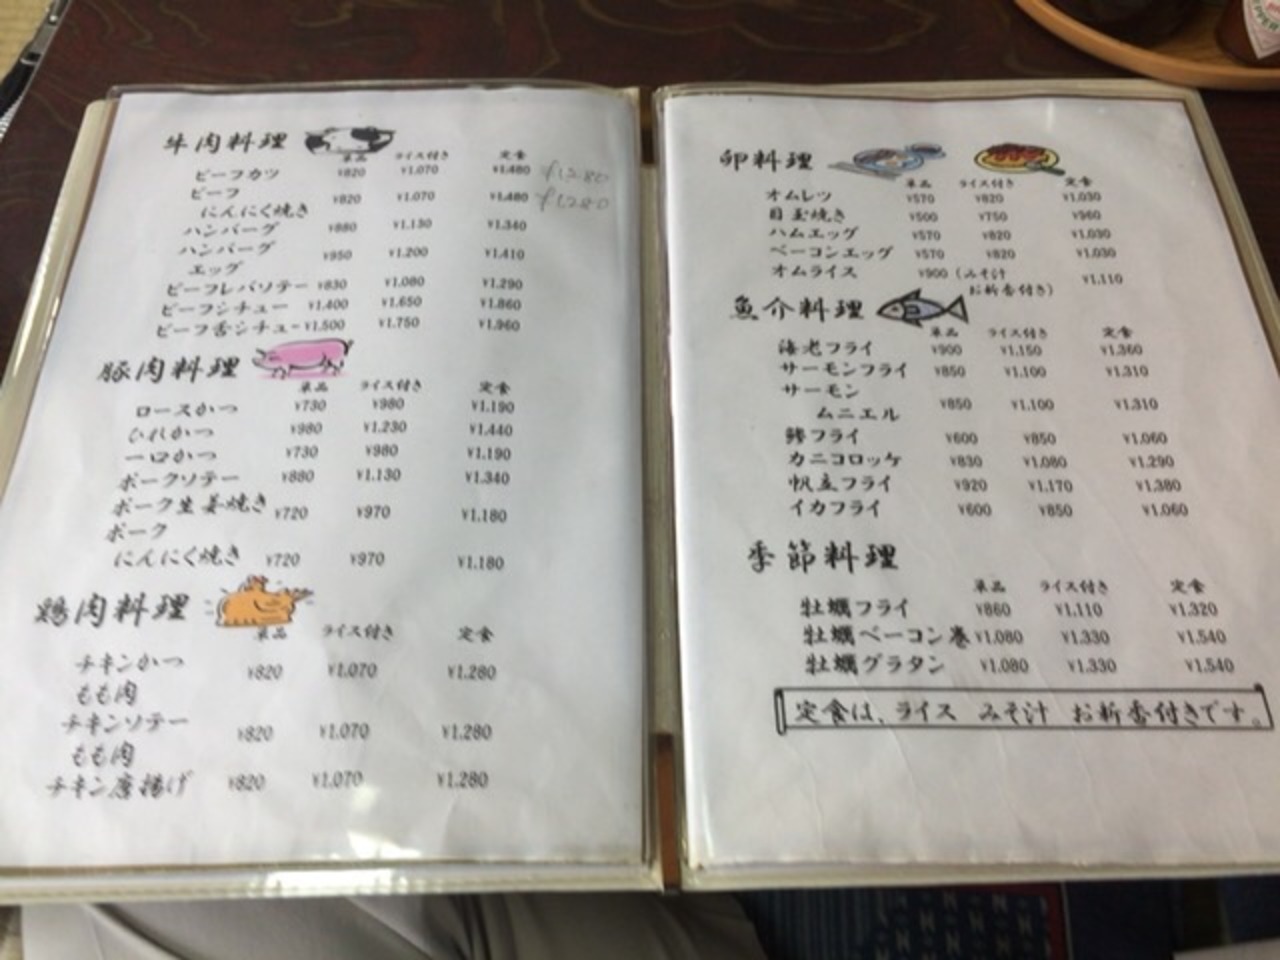 牛肉料理
単品 ライス付き 定食
ビーフカツ ¥820 ¥1.070 ¥1.480 ¥1280
ビーフ
にんにく焼き ¥820 ¥1.070 ¥1.480 ¥1280
ハンバーグ ¥880 ¥1.130 ¥1.340
ハンバーグ
エッグ ¥950 ¥1.200 ¥1.410
ビーフレバソテー ¥830 ¥1.080 ¥1.290
ビーフシチュー ¥1.400 ¥1.650 ¥1.860
ビーフ舌シチュー ¥1.500 ¥1.750 ¥1.960
豚肉料理
単品 ライス付き 定食
ロースかつ ¥730 ¥980 ¥1.190
ひれかつ ¥980 ¥1.230 ¥1.440
一口かつ ¥730 ¥980 ¥1.190
ポークソテー ¥880 ¥1.130 ¥1.340
ポーク生姜焼き ¥720 ¥970 ¥1.180
ポーク
にんにく焼き ¥720 ¥970 ¥1.180
鶏肉料理
単品 ライス付き 定食
チキンかつ ¥820 ¥1.070 ¥1.280
もも肉
チキンソテー ¥820 ¥1.070 ¥1.280
もも肉
チキン唐揚げ ¥820 ¥1.070 ¥1.280
卵料理
単品 ライス付き 定食
オムレツ ¥570 ¥820 ¥1.030
目玉焼き ¥500 ¥750 ¥960
ハムエッグ ¥570 ¥820 ¥1.030
ベーコンエッグ ¥570 ¥820 ¥1.030
オムライス ¥900 (みそ汁 ¥1.110
お新香付き)
魚介料理
単品 ライス付き 定食
海老フライ ¥900 ¥1.150 ¥1.360
サーモンフライ ¥850 ¥1.100 ¥1.310
サーモン
ムニエル ¥850 ¥1.100 ¥1.310
鯵フライ ¥600 ¥850 ¥1.060
カニコロッケ ¥830 ¥1.080 ¥1.290
帆立フライ ¥920 ¥1.170 ¥1.380
イカフライ ¥600 ¥850 ¥1.060
季節料理
単品 ライス付き 定食
牡蠣フライ ¥860 ¥1.110 ¥1.320
牡蠣ベーコン巻 ¥1.080 ¥1.330 ¥1.540
牡蠣グラタン ¥1.080 ¥1.330 ¥1.540
定食は、ライス みそ汁 お新香付きです。